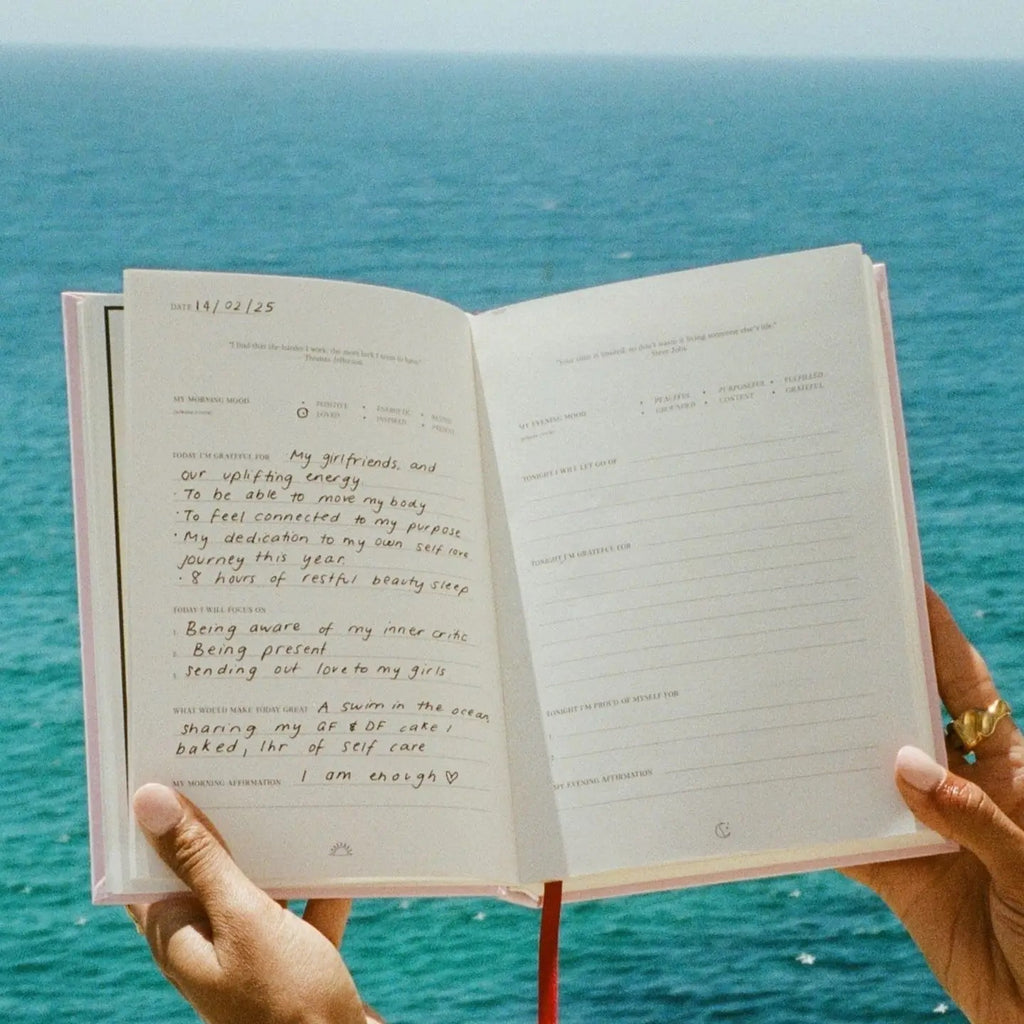 DATE 14/02/25
"I find that the harder I work, the more luck I seem to have."
Thomas Jefferson
MY MORNING MOOD
(please circle)
• POSITIVE • ENERGETIC •
LOVED • INSPIRED •
TODAY I'M GRATEFUL FOR My girlfriends, and
our uplifting energy.
· To be able to move my body
· To feel connected to my purpose
· My dedication to my own self love
journey this year.
· 8 hours of restful beauty sleep
TODAY I WILL FOCUS ON
1. Being aware of my inner critic
2. Being present
3. sending out love to my girls
WHAT WOULD MAKE TODAY GREAT A swim in the ocean,
sharing my GF & DF cake I
baked, 1hr of self care
MY MORNING AFFIRMATION I am enough ♡
"Your time is limited, so don't waste it living someone else's life."
Steve Jobs
MY EVENING MOOD
(please circle)
• PEACEFUL • PURPOSEFUL • FULFILLED
• GROUNDED • CONTENT • GRATEFUL
TONIGHT I WILL LET GO OF
TONIGHT I'M GRATEFUL FOR
TONIGHT I'M PROUD OF MYSELF FOR
1.
2.
MY EVENING AFFIRMATION